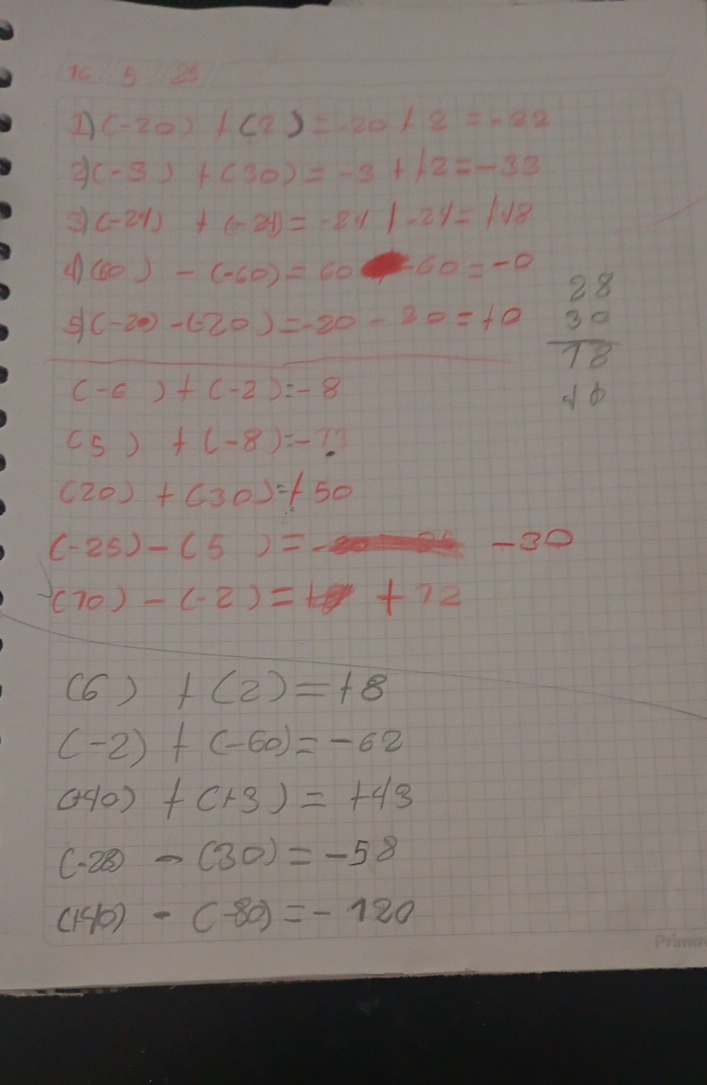 16 / 5 / 25
1) (-20) + (2) = -20 + 2 = -22
2) (-3) + (30) = -3 + 12 = -33
3) (-24) + (-24) = -24 + -24 = +48
4) (60) - (-60) = 60 -60 = -0
5) (-20) - (-20) = -20 - 20 = +0
28
30
18
(-6) + (-2) = -8
(5) + (-8) = -13
(20) + (30) = +50
(-25) - (5) = - -30
(70) - (-2) = + +72
(6) + (2) = +8
(-2) + (-60) = -62
(+40) + (+3) = +43
(-28) - (30) = -58
(+40) - (-80) = -120